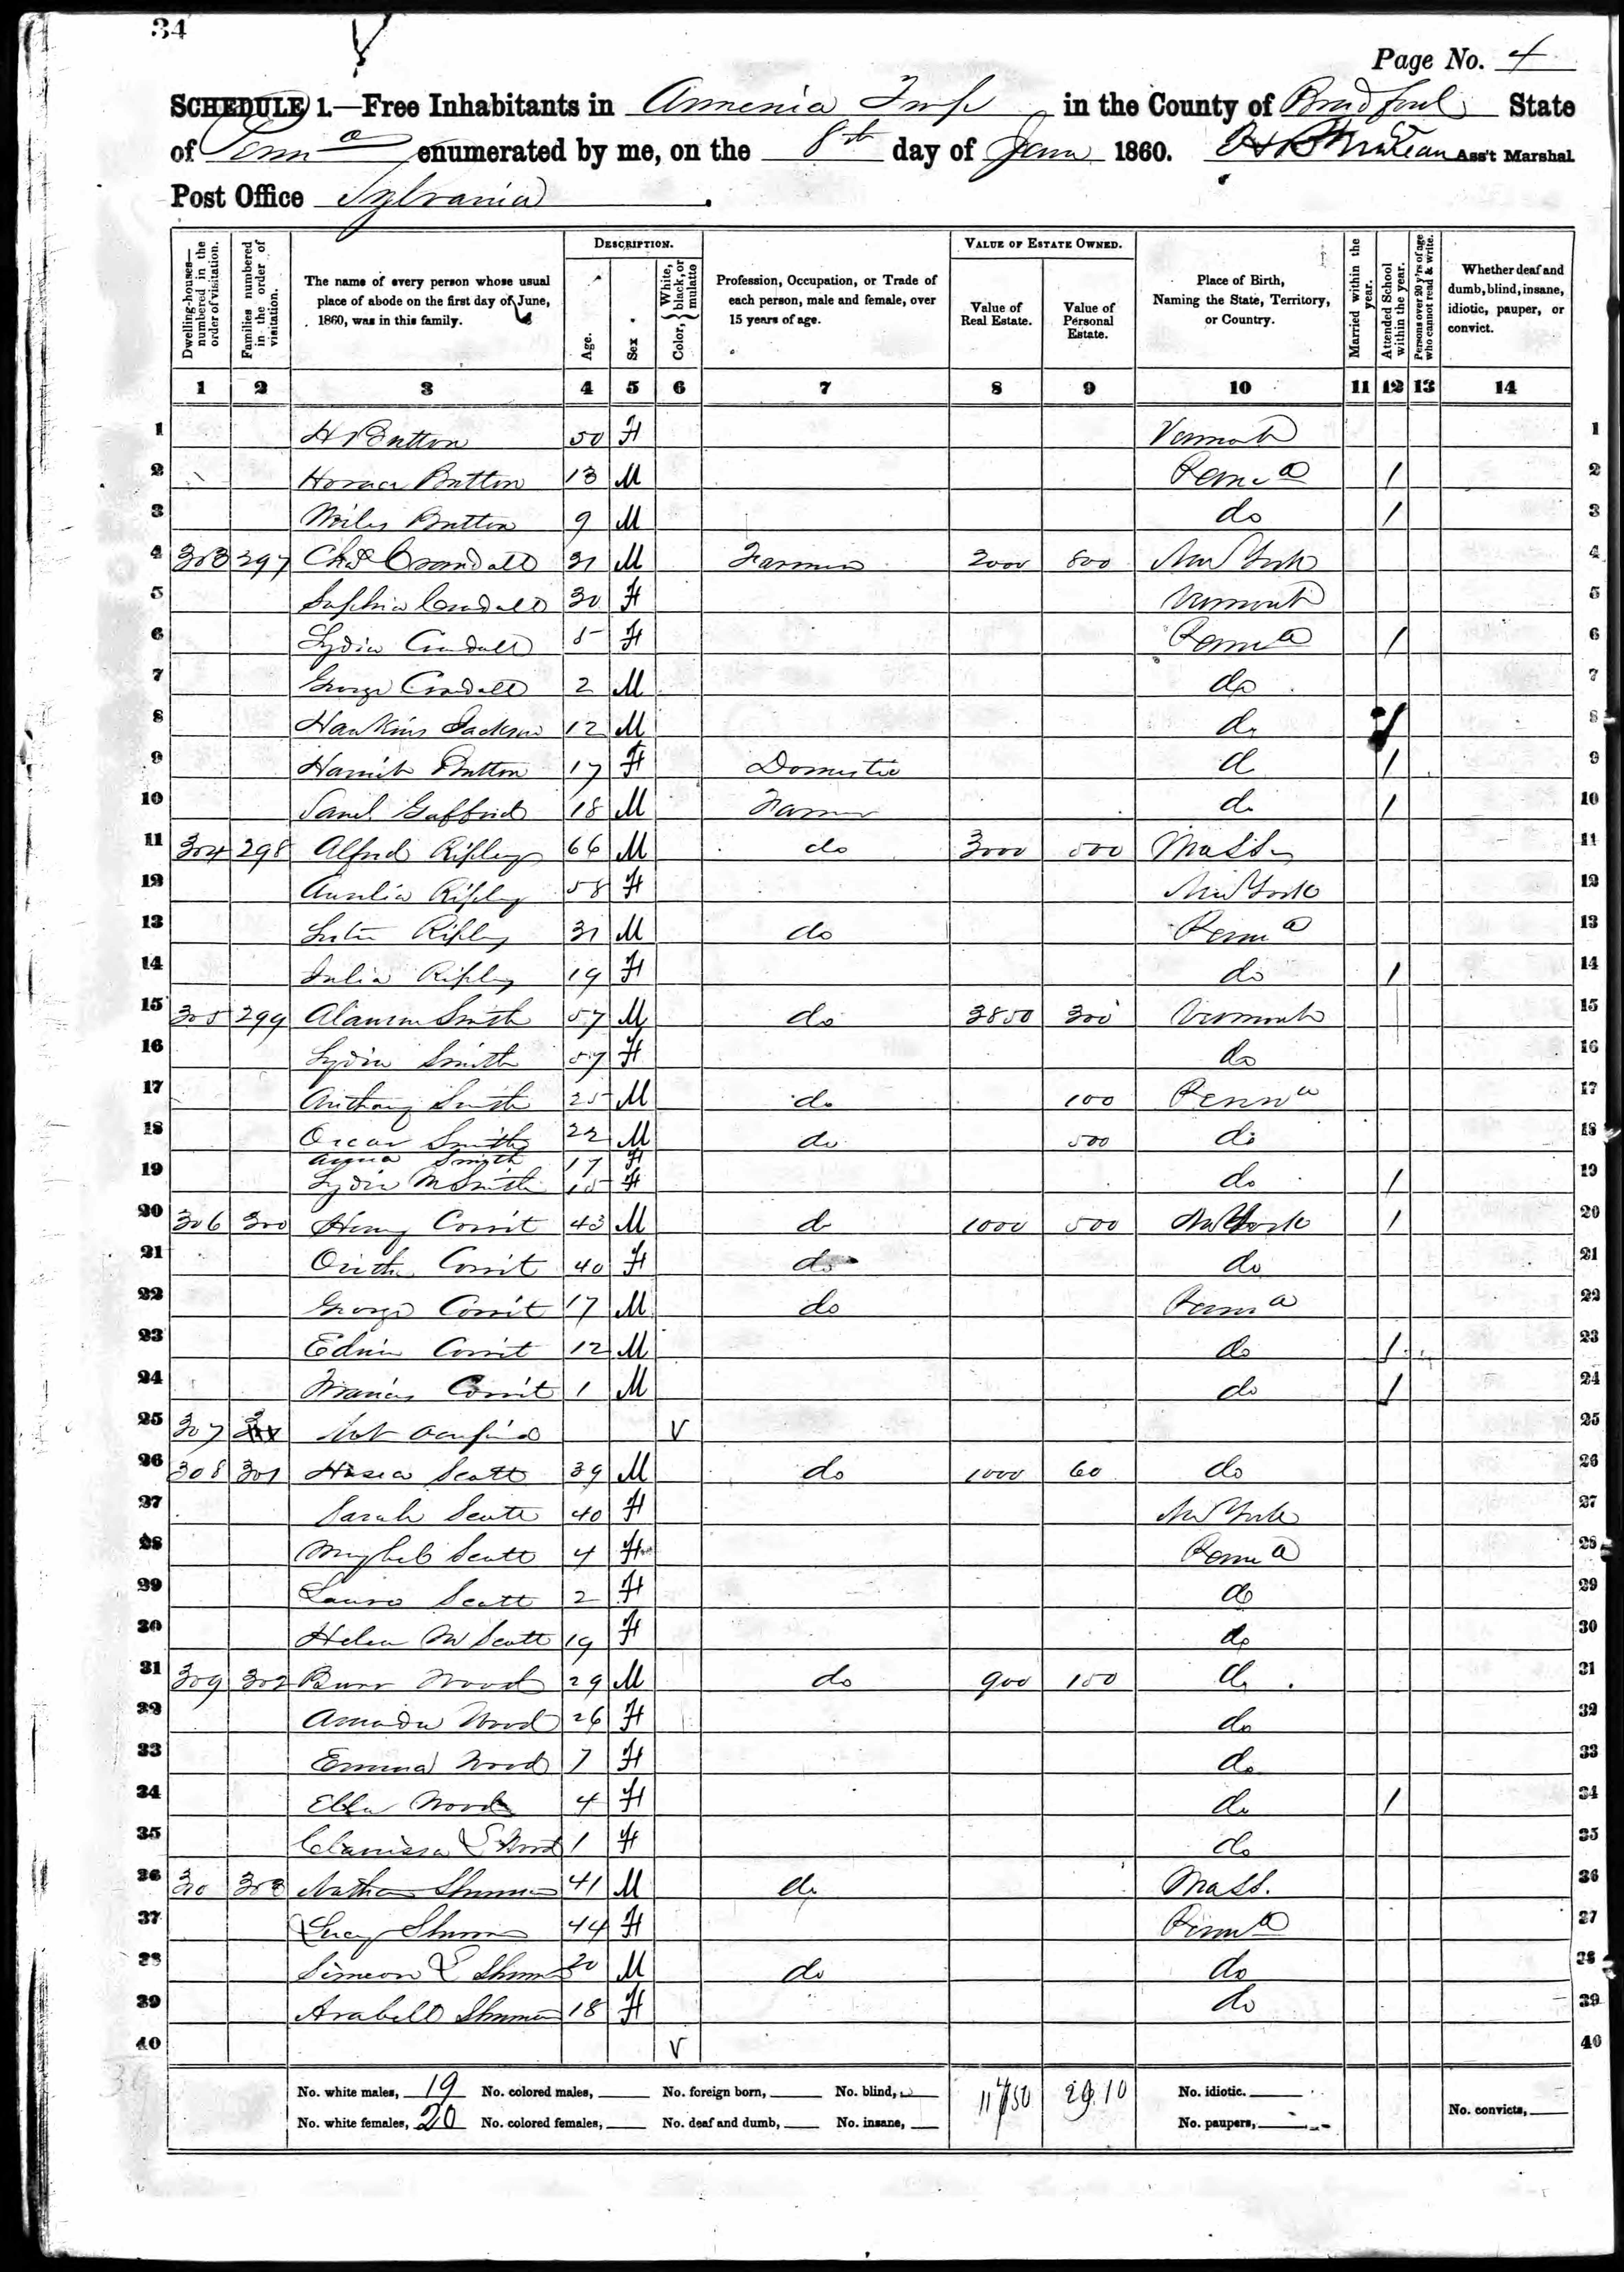 34
Page No. 4
SCHEDULE 1.—Free Inhabitants in Armenia Twp in the County of Bradford State
of Penna enumerated by me, on the 8th day of June 1860. Ass't Marshal
Post Office Sylvania
DESCRIPTION. VALUE OF ESTATE OWNED.
Dwelling-houses—numbered in the order of visitation. Families numbered in the order of visitation. The name of every person whose usual place of abode on the first day of June, 1860, was in this family. Age. Sex Color, White, black, or mulatto Profession, Occupation, or Trade of each person, male and female, over 15 years of age. Value of Real Estate. Value of Personal Estate. Place of Birth, Naming the State, Territory, or Country. Married within the year. Attended School within the year. Persons over 20 y'rs of age who cannot read & write. Whether deaf and dumb, blind, insane, idiotic, pauper, or convict.
1 2 3 4 5 6 7 8 9 10 11 12 13 14
1 H Button 50 F Vermont 1
2 Horace Button 13 M Penna / 2
3 Miles Button 9 M do / 3
4 303 297 Chs Crandall 31 M Farmer 2000 800 New York 4
5 Sophia Crandall 30 F Vermont 5
6 Lydia Crandall 5 F Penna / 6
7 George Crandall 2 M do 7
8 Hawkins Jackson 12 M do / 8
9 Harriet Button 17 F Domestic do / 9
10 Saml 18 M Farmer do / 10
11 304 298 Alfred Ripley 66 M do 3000 500 Mass 11
12 Aurelia Ripley 58 F New York 12
13 Ripley 31 M do Penna 13
14 Julia Ripley 19 F do / 14
15 305 299 Alanson Smith 57 M do 3850 300 Vermont 15
16 Lydia Smith 57 F do 16
17 Anthony Smith 25 M do 100 Penna 17
18 Oscar Smith 22 M do 500 do 18
Anna Smith 17 F
19 Lydia M Smith 15 F do / 19
20 306 300 Henry 43 M do 1000 500 New York / 20
21 40 F do do 21
22 George 17 M do Penna 22
23 Edwin 12 M do / 23
24 Francis 1 M do / 24
25 307 Not occupied V 25
26 308 301 Hosea Scott 39 M do 1000 60 do 26
27 Sarah Scott 40 F New York 27
28 Scott 4 F Penna 28
29 Laura Scott 2 F do 29
30 Helen M Scott 19 F do 30
31 309 302 Burr Wood 29 M do 900 150 do 31
32 Amanda Wood 26 F do 32
33 Emma Wood 7 F do 33
34 Ella Wood 4 F do / 34
35 Clarissa L Wood 1 F do 35
36 310 303 Nathan 41 M do Mass. 36
37 Lucy 44 F Penna 37
38 Simeon L 20 M do do 38
39 Arabell 18 F do 39
40 V 40
No. white males, 19 No. colored males, No. foreign born, No. blind, 2910 No. idiotic.
No. white females, 20 No. colored females, No. deaf and dumb, No. insane, No. paupers, No. convicts,